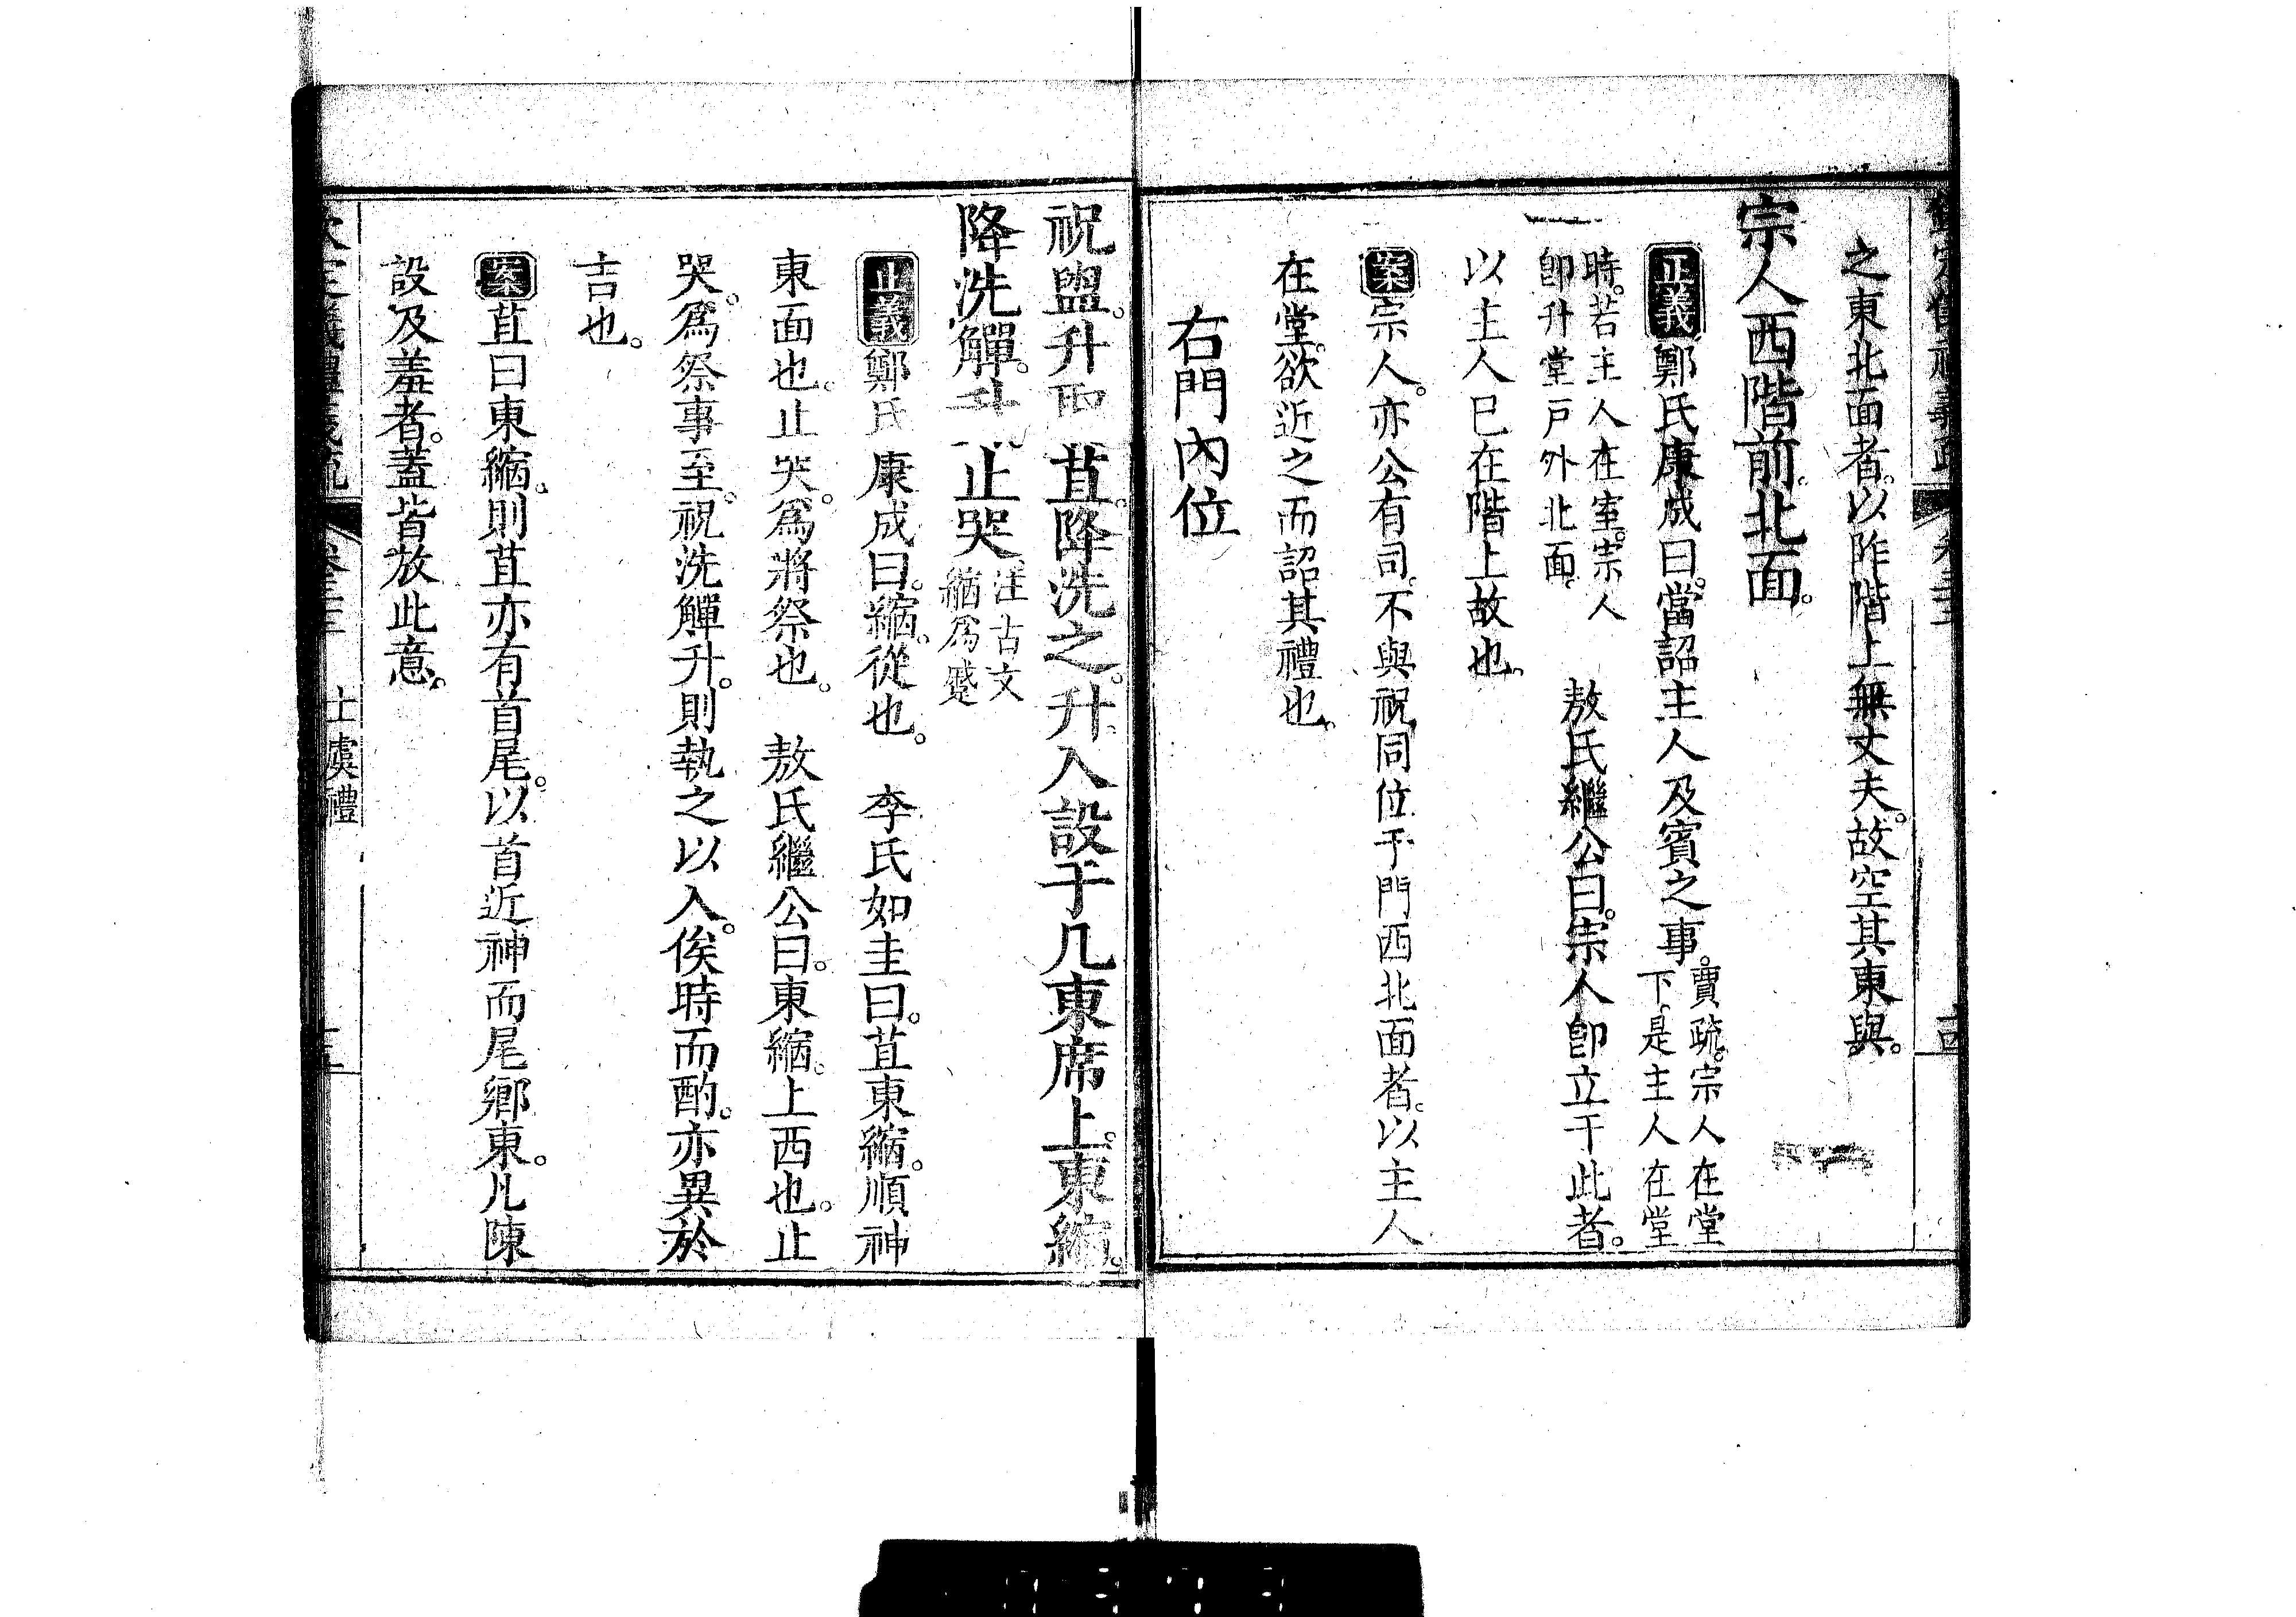 之東北面者。以阼階上無丈夫。故空其東與。
宗人西階前。北面。
正義鄭氏康成曰。當詔主人及賓之事。賈疏。宗人在堂
下。是主人在堂
時。若主人在室。宗人
卽升堂戸外北面。
敖氏繼公曰。宗人卽立于此者。
以主人巳在階上故也。
案宗人。亦公有司。不與祝同位于門西北面者。以主人
在堂。欲近之而詔其禮也。
右門內位
祝盥。升 苴。降洗之。升入設于几東席上。東縮。
降洗觶。升 止哭
注古文
縮爲蹙
正義鄭氏康成曰。縮。從也。 李氏如圭曰。苴東縮。順神
東面也。止哭。爲將祭也。 敖氏繼公曰。東縮。上西也。止
哭。爲祭事至。祝洗觶升。則執之以入。俟時而酌。亦異於
吉也。
案苴曰東縮。則苴亦有首尾。以首近神而尾鄉東。凡陳
設及羞者。蓋皆放此意。
士虞禮